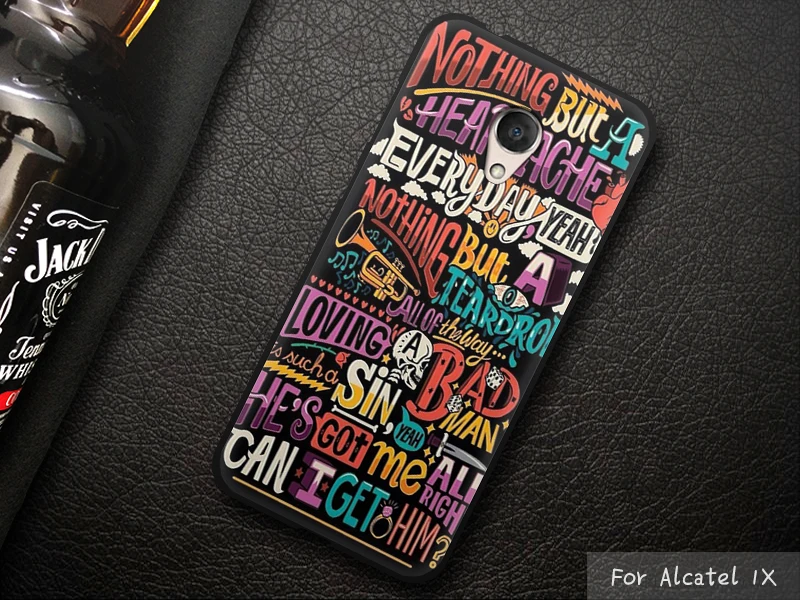 NOTHING BUT A
HEARTACHE
EVERYDAY, YEAH
NOTHING BUT A
TEARDROP
ALL OF the Way...
LOVING A BAD
MAN
is such a SIN, YEAH
HE'S GOT me
CAN I GET HIM?
ALL
RIGH
VISIT US A
JACK
For Alcatel 1X